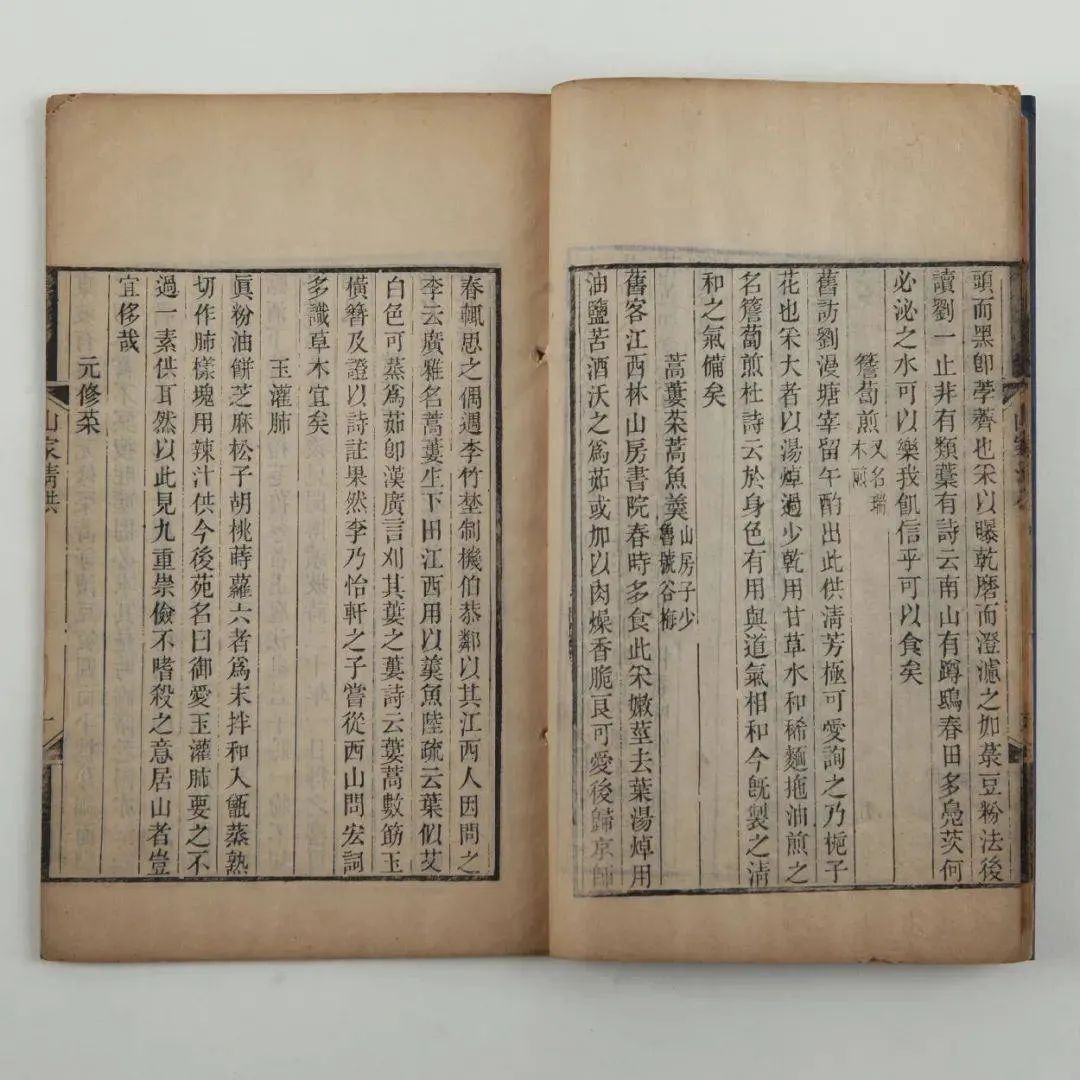 頭而黑卽荸薺也采以曝乾磨而澄濾之如菉豆粉法後
讀劉一止非有類葉有詩云南山有蹲鴟春田多鳧茨何
必泌之水可以樂我飢信乎可以食矣
簷蔔煎又名瑞
木煎
舊訪劉漫塘宰留午酌出此供淸芳極可愛詢之乃梔子
花也采大者以湯焯過少乾用甘草水和稀麵拖油煎之
名簷蔔煎杜詩云於身色有用與道氣相和今旣製之淸
和之氣備矣
蒿蔞菜蒿魚羹山房子少
魯號谷梅
舊客江西林山房書院春時多食此采嫩莖去葉湯焯用
油鹽苦酒沃之爲茹或加以肉燥香脆良可愛後歸京師
春輒思之偶遇李竹埜制機伯恭鄰以其江西人因問之
李云廣雅名蒿蔞生下田江西用以羹魚陸疏云葉似艾
白色可蒸爲茹卽漢廣言刈其蔞之蔞詩云蔞蒿數筯玉
橫簪及證以詩註果然李乃怡軒之子嘗從西山問宏詞
多識草木宜矣
玉灌肺
眞粉油餅芝麻松子胡桃蒔蘿六者爲末拌和入甑蒸熟
切作肺樣塊用辣汁供今後苑名曰御愛玉灌肺要之不
過一素供耳然以此見九重崇儉不嗜殺之意居山者豈
宜侈哉
元修菜
山家淸供